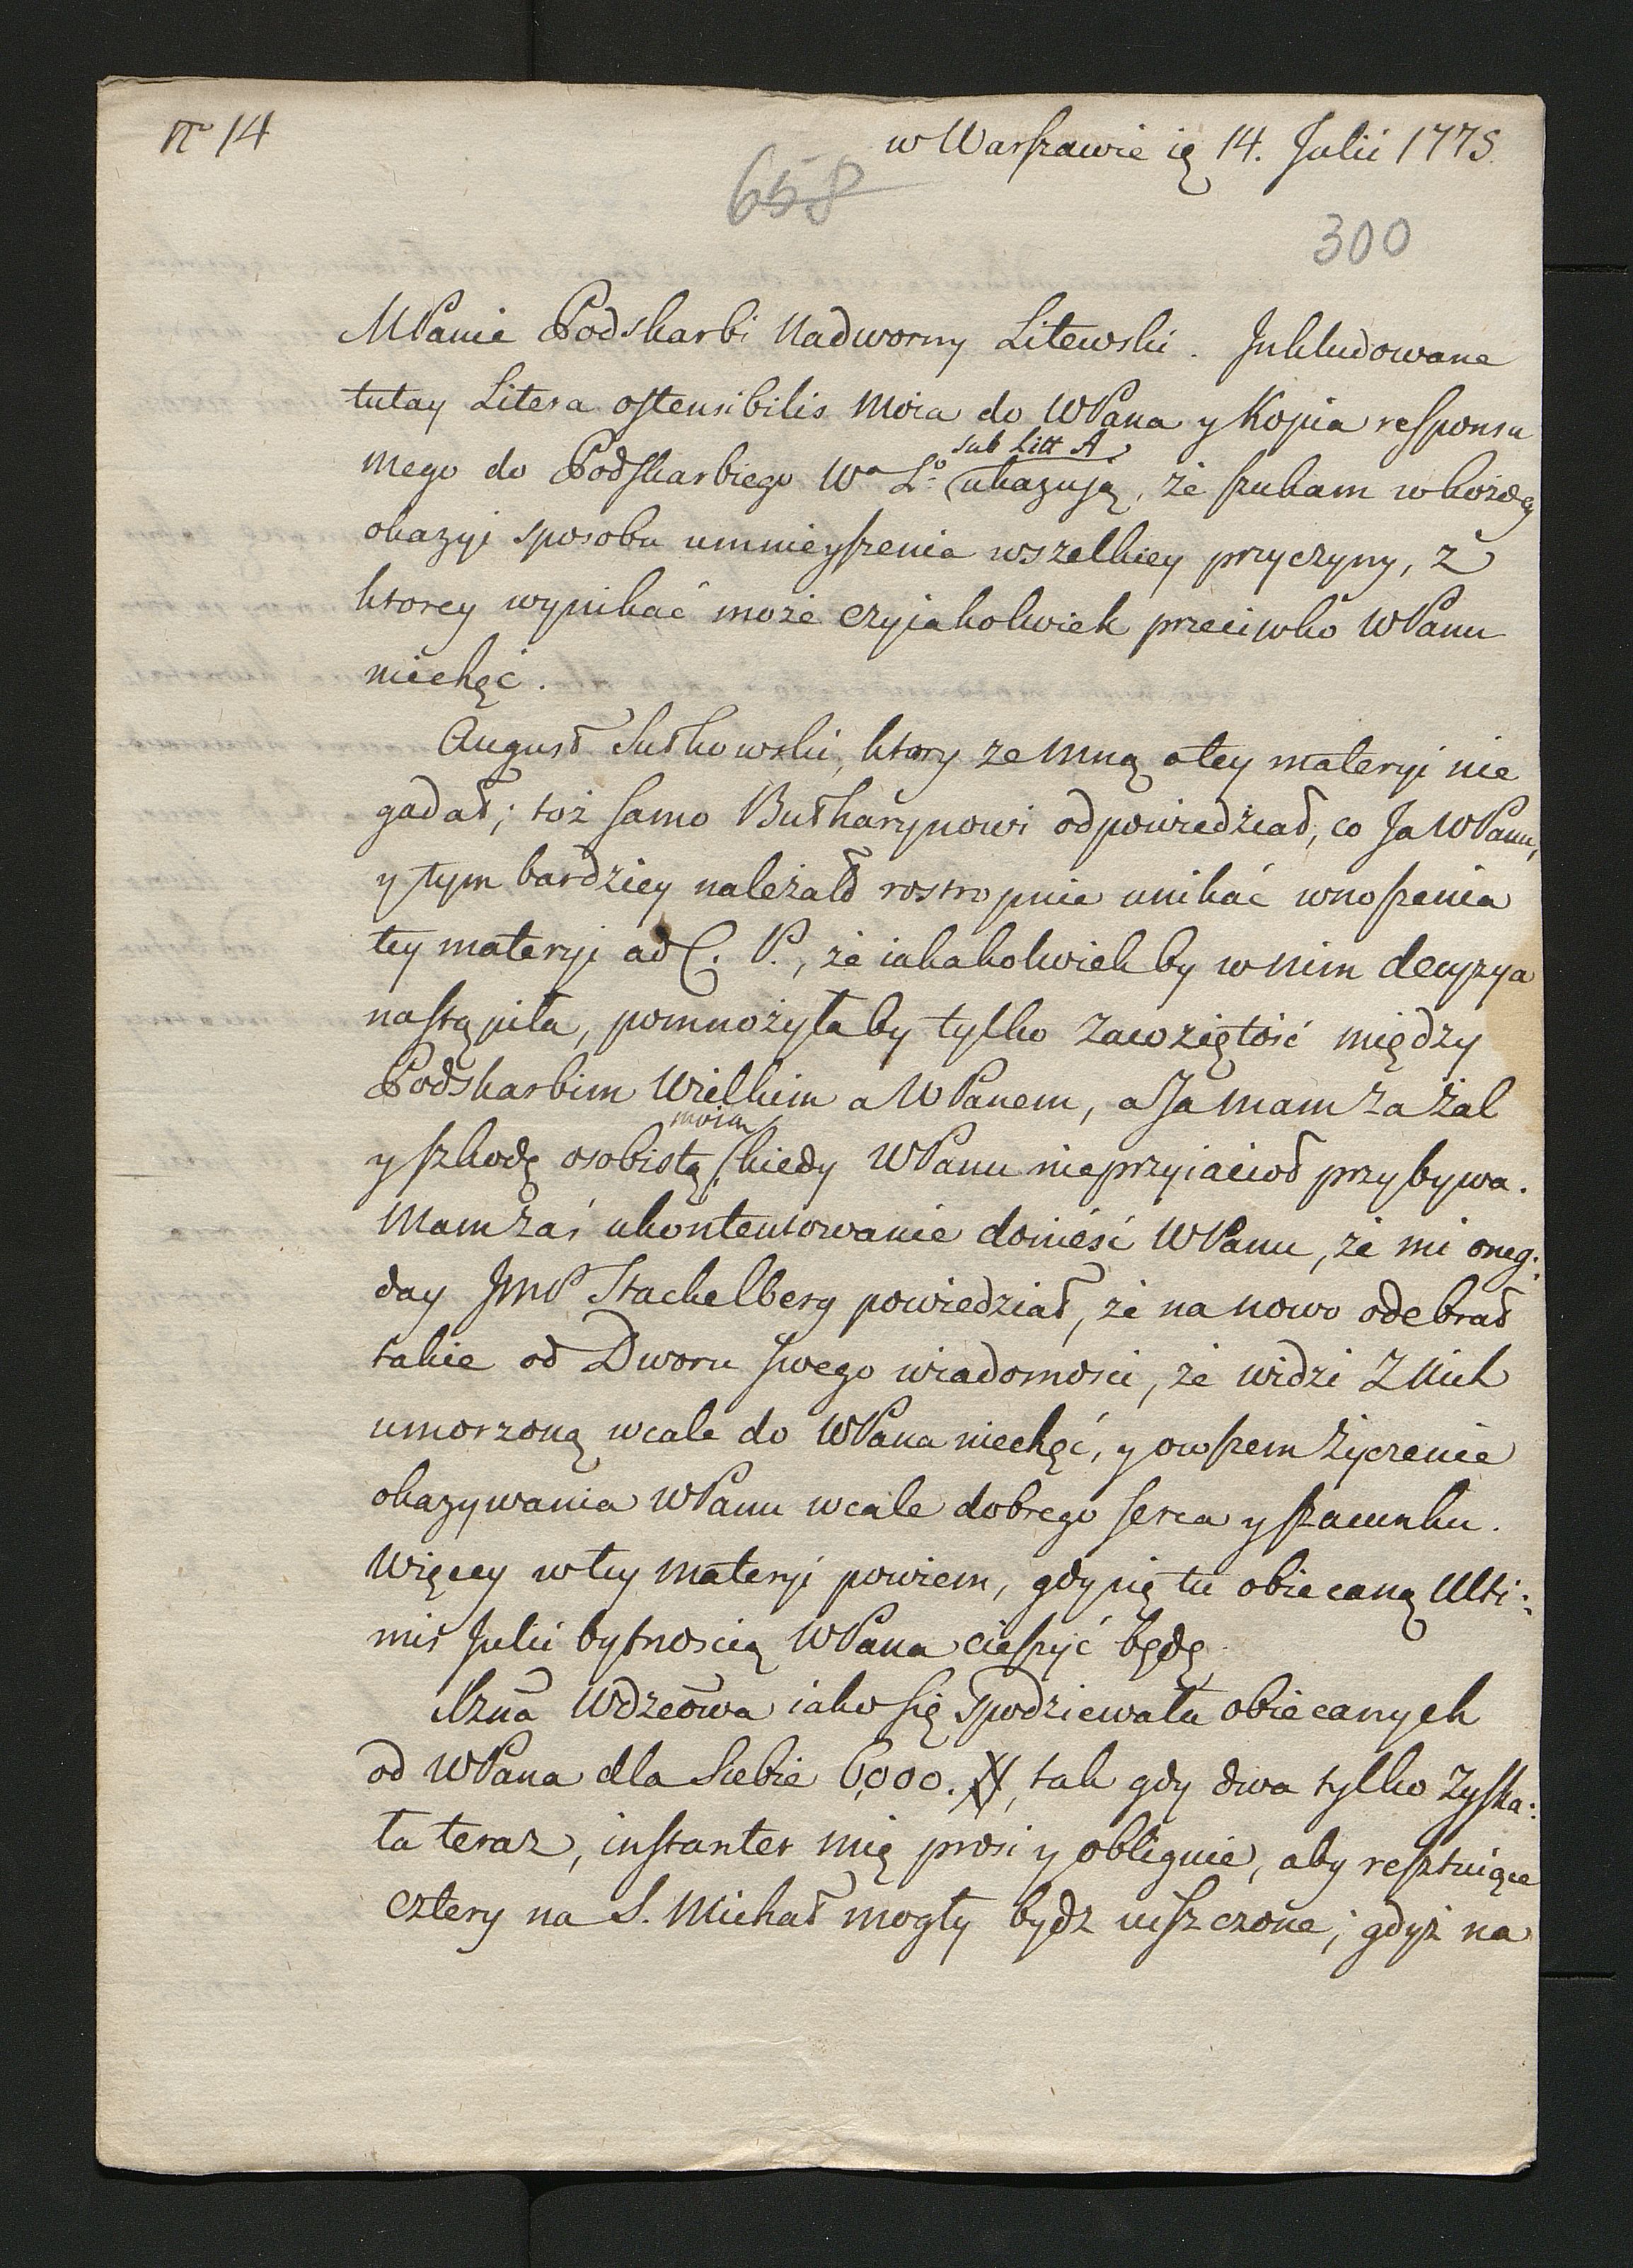 No 14
w Warszawie ię 14. Julii 1775.
658
300
MPanie Podskarbi Nadworny Litewski. Inkludowane
tutay Litera ostensibilis Moia do WPana y Kopia responsu
sub Litt A
mego do Podskarbiego Wo Lo ukazują, że szukam w kożdey
okazyi sposobu umnieyszenia wszelkiey przyczyny, z
ktorey wynikać może czyiakolwiek przeciwko WPanu
niechęć.
August Sułkowski, ktory ze mną o tey materyi nie
gadał; toż samo Bułharynowi odpowiedział, co Ja WPanu,
y tym bardziey należało rostropnie unikać wnoszenia
tey materyi ad C. P., że iakakolwiek by w nim decyzya
nastąpiła, pomnożyłaby tylko zawziętość między
Podskarbim Wielkim a WPanem, a Ja mam za żal
moim
y szkodę osobistą, kiedy WPanu nieprzyiacioł przybywa.
Mam zaś ukontentowanie donieść WPanu, że mi oneg:
day JmP Stackelberg powiedział, że na nowo odebrał
takie od Dworu swego wiadomosci, że widzi z nich
umorzoną wcale do WPana niechęć, y owszem życzenie
okazywania WPanu wcale dobrego serca y szacunku.
Więcey w tey materyi powiem, gdy się tu obiecaną Ulti:
mis Julii bytnoscią WPana cieszyć będę.
Wdzeowa iako się spodziewała obiecanych
od WPana dla Siebie 6,000. #, tak gdy dwa tylko zyska:
ła teraz, instanter mię prosi y obliguie, aby resztuiące
cztery na S. Michał mogły bydz uiszczone; gdyż na